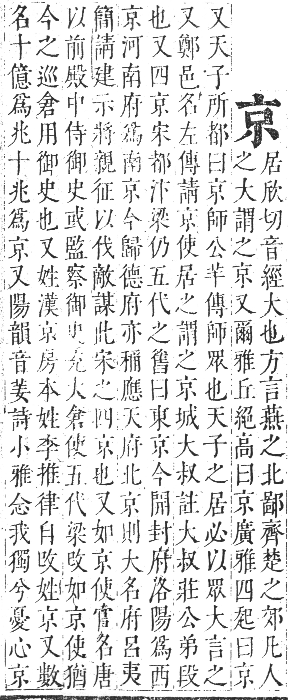 京
居欣切音經大也方言燕之北鄙齊楚之郊凡人
之大謂之京又爾雅丘絕高曰京廣雅四起曰京
又天子所都曰京師公羊傳師眾也天子之居必以眾大言之
又鄭邑名左傳請京使居之謂之京城大叔註大叔莊公弟段
也又四京宋都汴梁仍五代之舊曰東京今開封府洛陽爲西
京河南府爲南京今歸德府亦稱應天府北京則大名府呂夷
簡請建示將親征以伐敵謀此宋之四京也又如京使官名唐
以前殿中侍御史或監察御史充大倉使五代梁改如京使猶
今之巡倉用御史也又姓漢京房本姓李推律自改姓京又數
名十億爲兆十兆爲京又陽韻音姜詩小雅念我獨兮憂心京